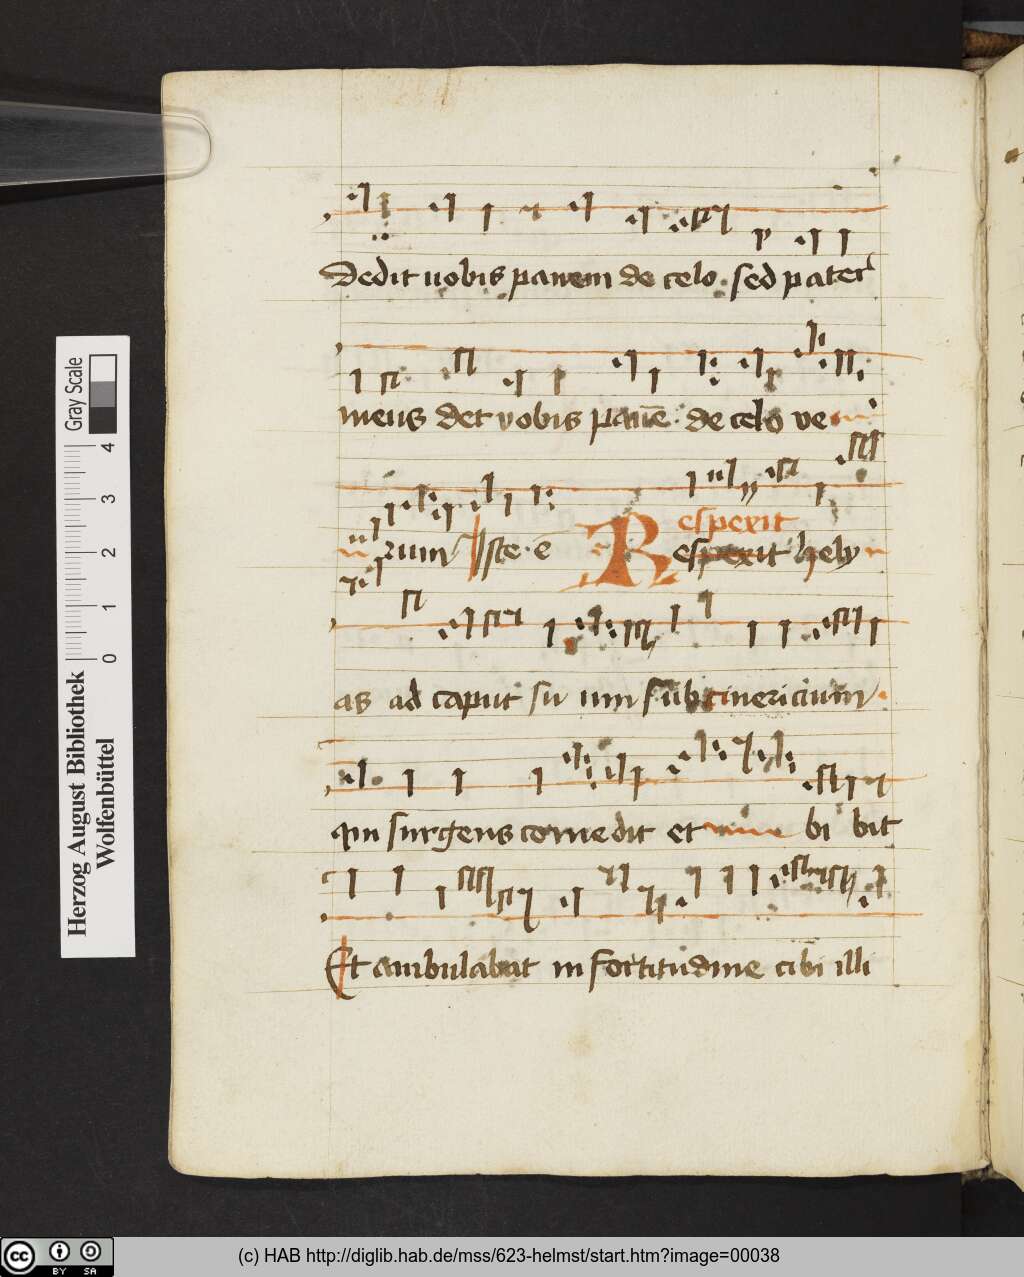 Dedit uobis panem de celo · sed pater
meus det vobis panē · de celo ve
rum Iste · ē Respexit hely
espexit
as ad caput su um subcinericium ·
qui surgens comedit et bi bit
Et ambulabat in fortitudine cibi illi
Gray Scale
0 1 2 3 4
Herzog August Bibliothek
Wolfenbüttel
cc BY SA
(c) HAB http://diglib.hab.de/mss/623-helmst/start.htm?image=00038